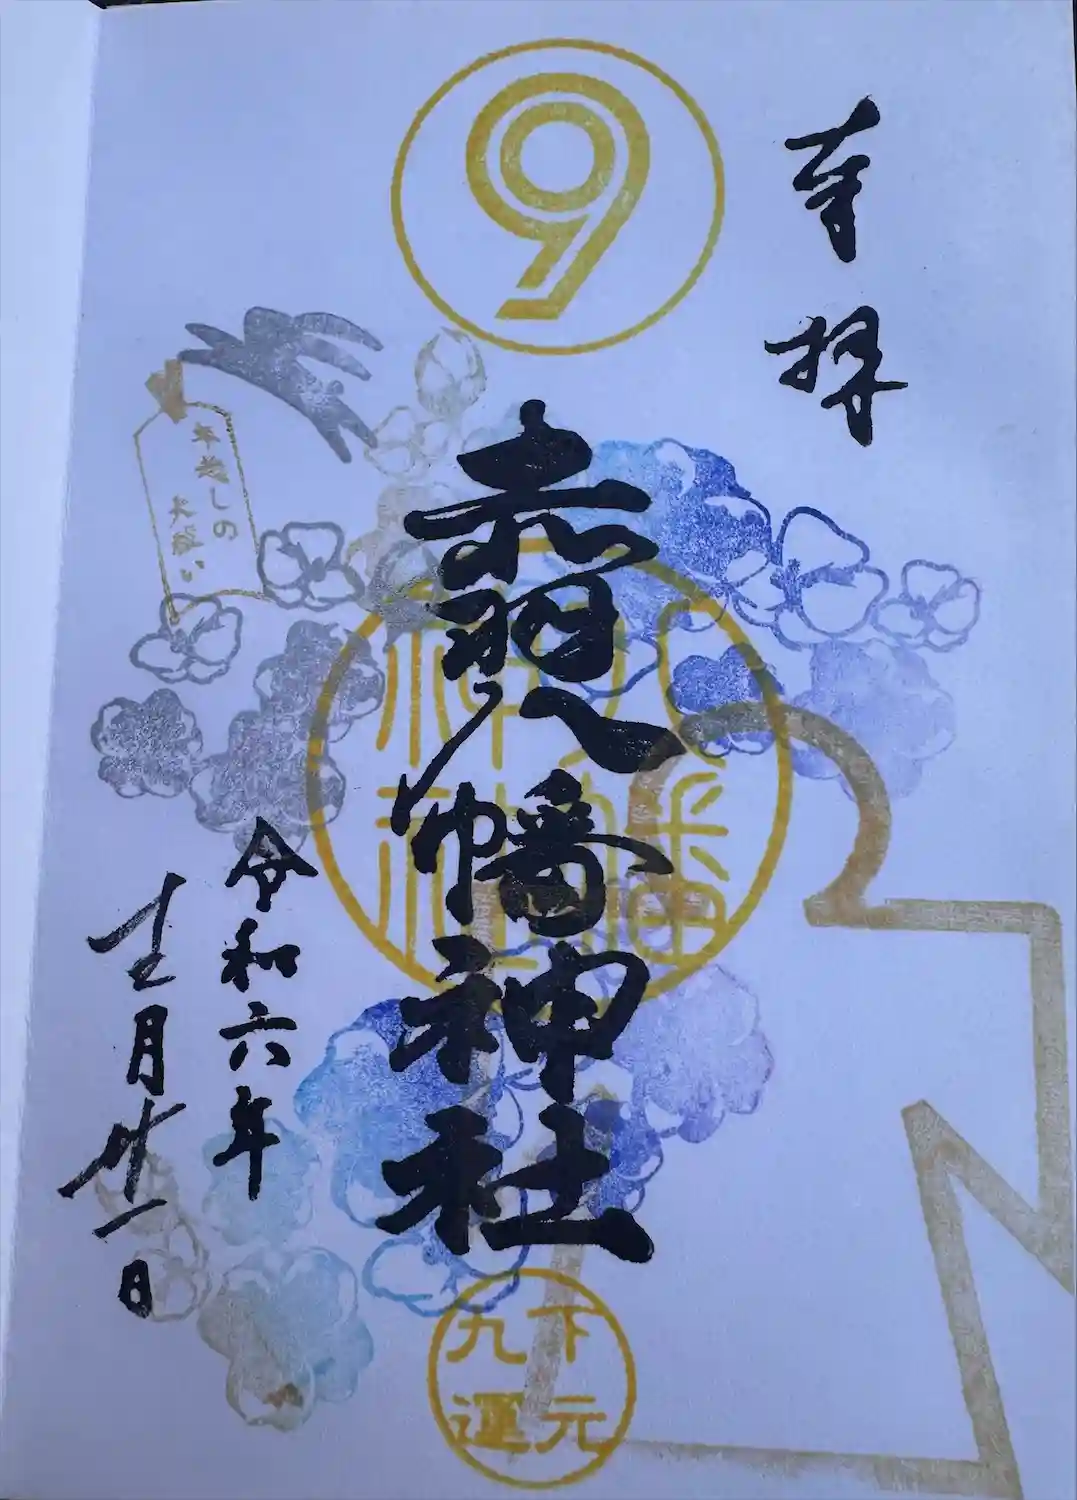 9
奉拝
赤羽八幡神社
年越しの
大祓い
令和六年
十二月廿一日
下元
九運